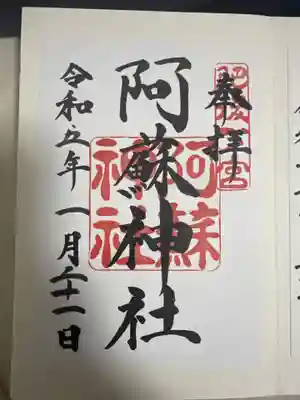 奉拝
肥後一宮
阿蘇神社
阿蘇
神社
令和五年一月二十一日